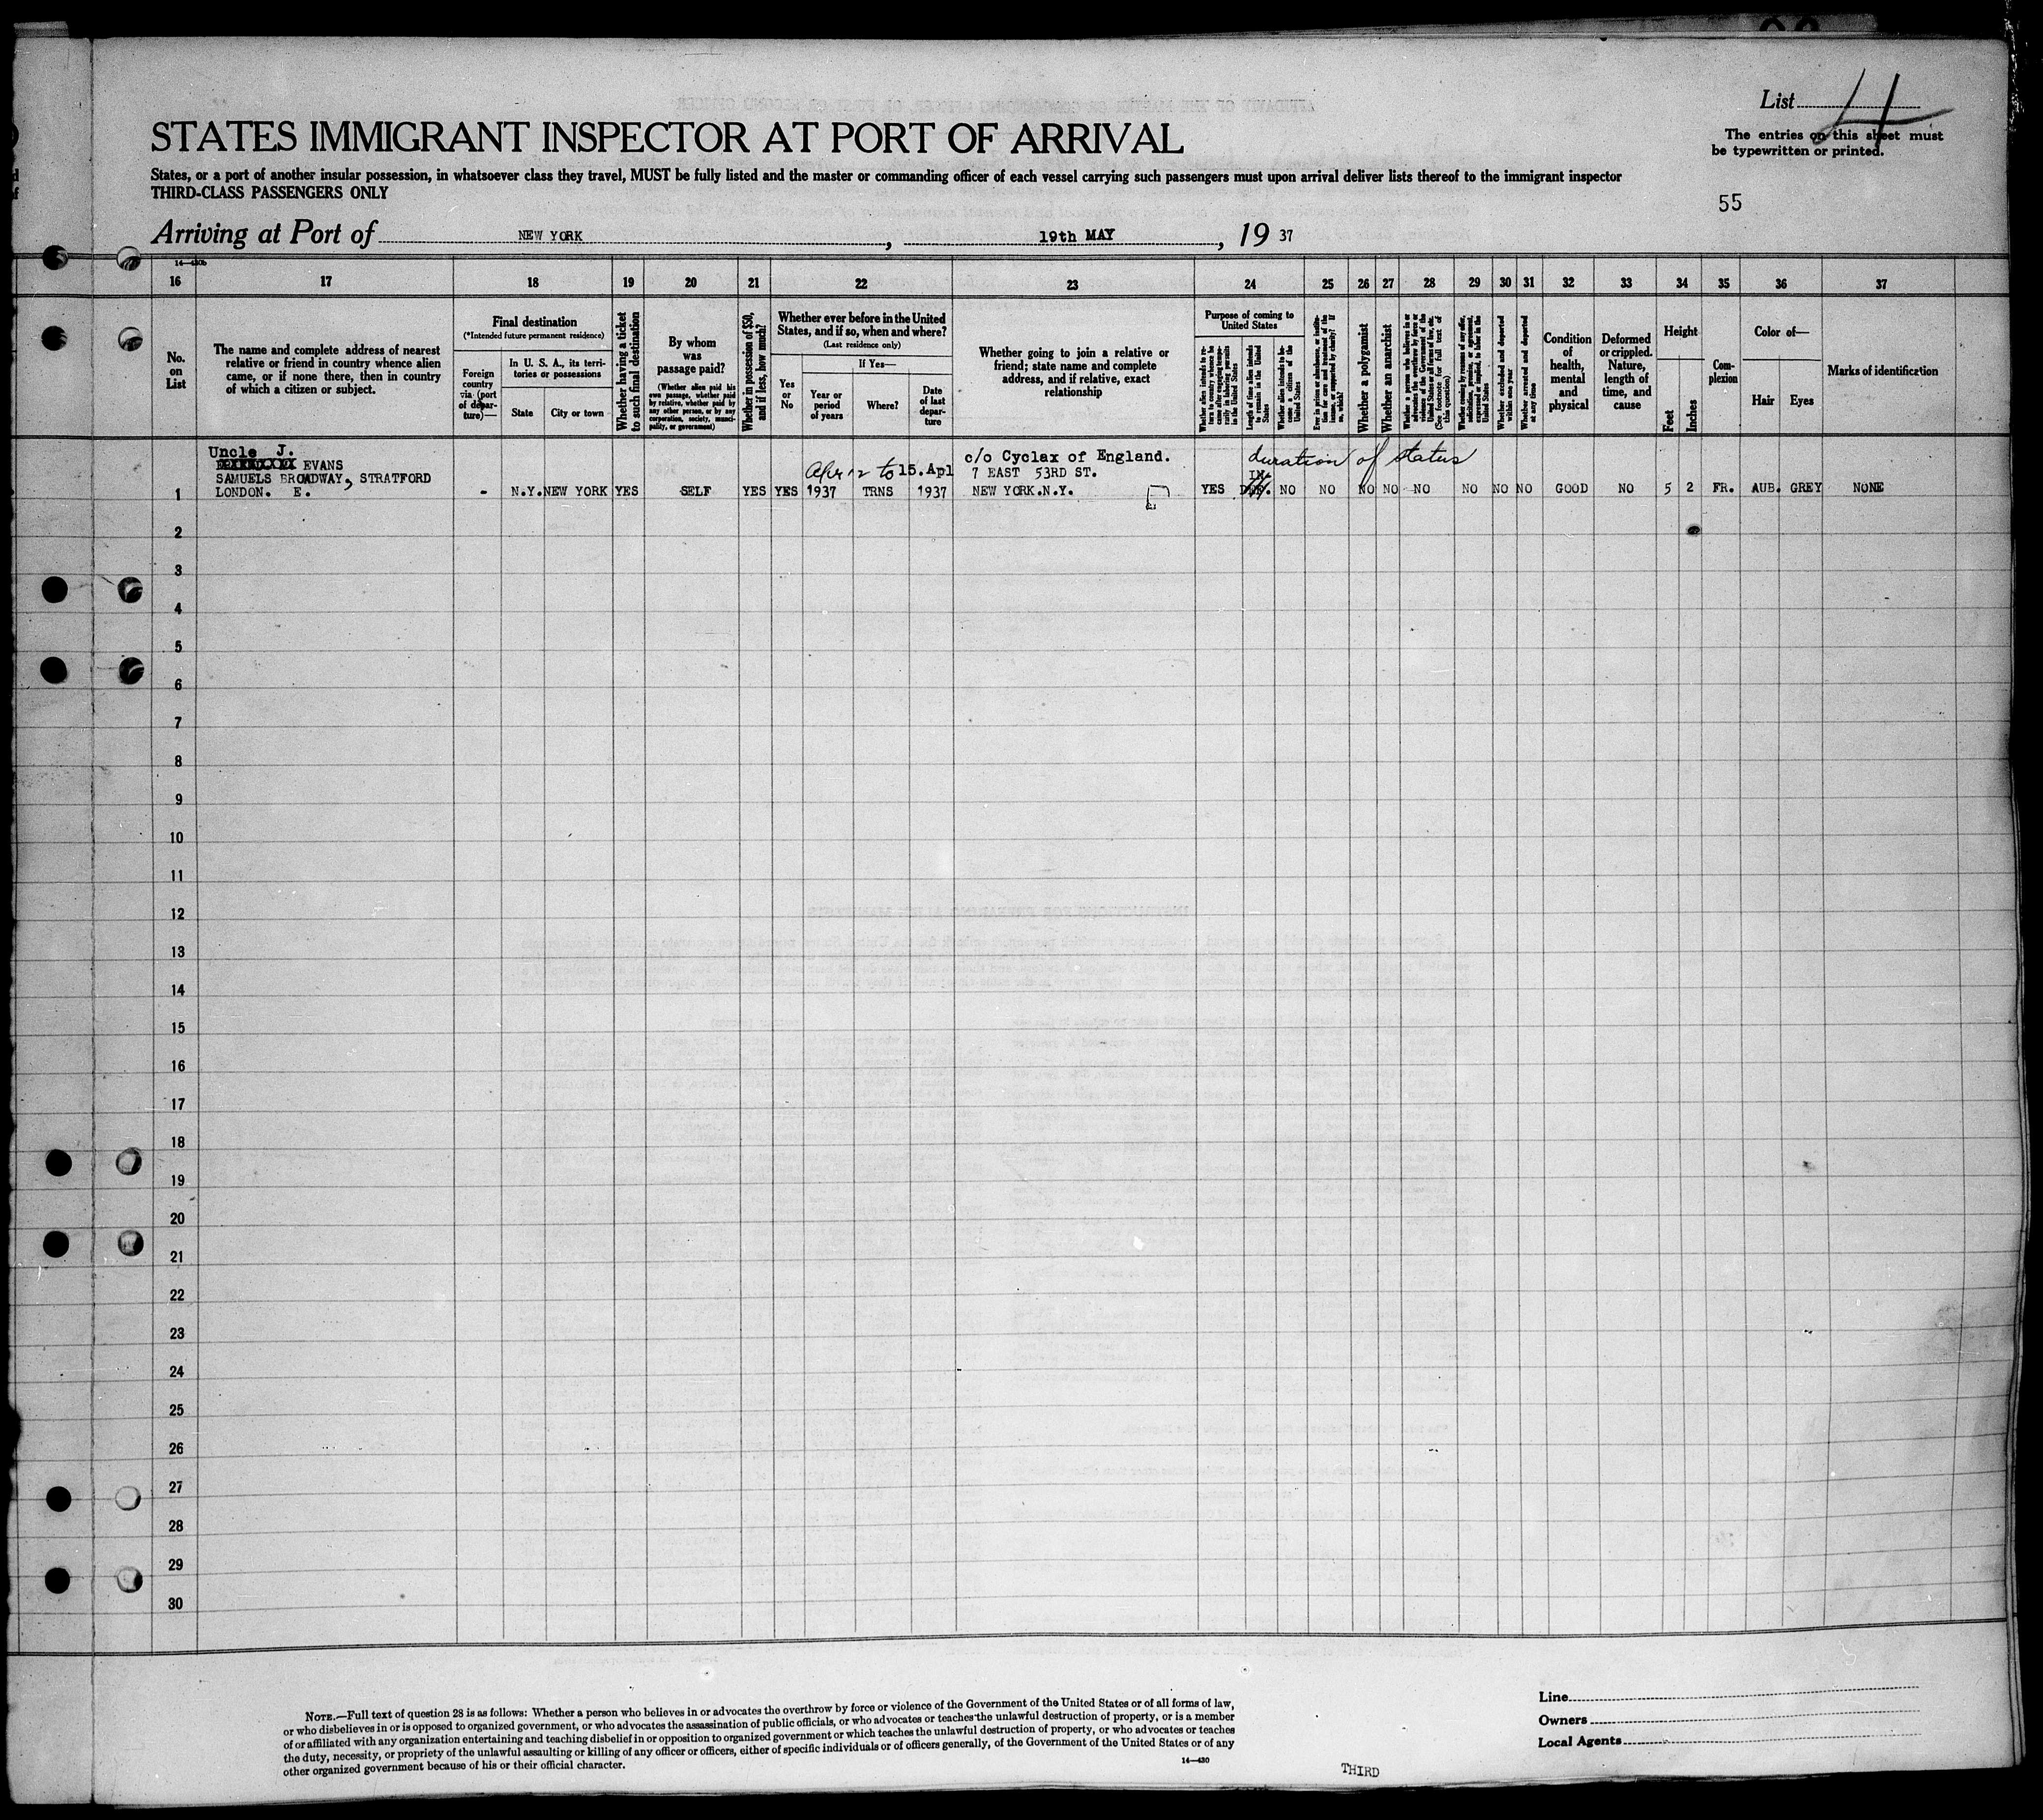 List 4
STATES IMMIGRANT INSPECTOR AT PORT OF ARRIVAL
The entries on this sheet must
be typewritten or printed.
States, or a port of another insular possession, in whatsoever class they travel, MUST be fully listed and the master or commanding officer of each vessel carrying such passengers must upon arrival deliver lists thereof to the immigrant inspector
THIRD-CLASS PASSENGERS ONLY
55
Arriving at Port of NEW YORK, 19th MAY, 19 37
16 17 18 19 20 21 22 23 24 25 26 27 28 29 30 31 32 33 34 35 36 37
No.
on
List
The name and complete address of nearest
relative or friend in country whence alien
came, or if none there, then in country
of which a citizen or subject.
Final destination
(*Intended future permanent residence)
Foreign
country
via (port
of depar-
ture)—
In U. S. A., its terri-
tories or possessions
State City or town
Whether having a ticket
to such final destination
By whom
was
passage paid?
(Whether alien paid his
own passage, whether paid
by relative, whether paid by
any other person, or by any
corporation, society, munici-
pality, or government)
Whether in possession of $50,
and if less, how much?
Whether ever before in the United
States, and if so, when and where?
(Last residence only)
Yes
or
No
If Yes—
Year or
period
of years
Where?
Date
of last
depar-
ture
Whether going to join a relative or
friend; state name and complete
address, and if relative, exact
relationship
Purpose of coming to
United States
Whether alien intends to re-
turn to country whence he
came after engaging tempo-
rarily in laboring pursuits
in the United States
Length of time alien intends
to remain in the United
States
Whether alien intends to be-
come a citizen of the
United States
Ever in prison or almshouse, or institu-
tion for care and treatment of the
insane, or supported by charity? If
so, which?
Whether a polygamist
Whether an anarchist
Whether a person who believes in or
advocates the overthrow by force or
violence of the Government of the
United States or all forms of law, etc.
(See footnote for full text of
this question)
Whether coming by reason of any offer,
solicitation, promise, or agreement,
expressed or implied, to labor in the
United States
Whether excluded and deported
within one year
Whether arrested and deported
at any time
Condition
of
health,
mental
and
physical
Deformed
or crippled.
Nature,
length of
time, and
cause
Height
Feet
Inches
Com-
plexion
Color of—
Hair Eyes
Marks of identification
Uncle J.
EVANS
SAMUELS BROADWAY, STRATFORD
LONDON. E.
1 - N.Y. NEW YORK YES SELF YES YES 1937 TRNS 1937
Apr 12 to 15.Apl
c/o Cyclax of England.
7 EAST 53RD ST.
NEW YORK.N.Y.
duration of status
YES NO NO NO NO NO NO NO NO GOOD NO 5 2 FR. AUB. GREY NONE
2
3
4
5
6
7
8
9
10
11
12
13
14
15
16
17
18
19
20
21
22
23
24
25
26
27
28
29
30
NOTE.—Full text of question 28 is as follows: Whether a person who believes in or advocates the overthrow by force or violence of the Government of the United States or of all forms of law,
or who disbelieves in or is opposed to organized government, or who advocates the assassination of public officials, or who advocates or teaches the unlawful destruction of property, or is a member
of or affiliated with any organization entertaining and teaching disbelief in or opposition to organized government or which teaches the unlawful destruction of property, or who advocates or teaches
the duty, necessity, or propriety of the unlawful assaulting or killing of any officer or officers, either of specific individuals or of officers generally, of the Government of the United States or of any
other organized government because of his or their official character.
14—430
THIRD
Line
Owners
Local Agents